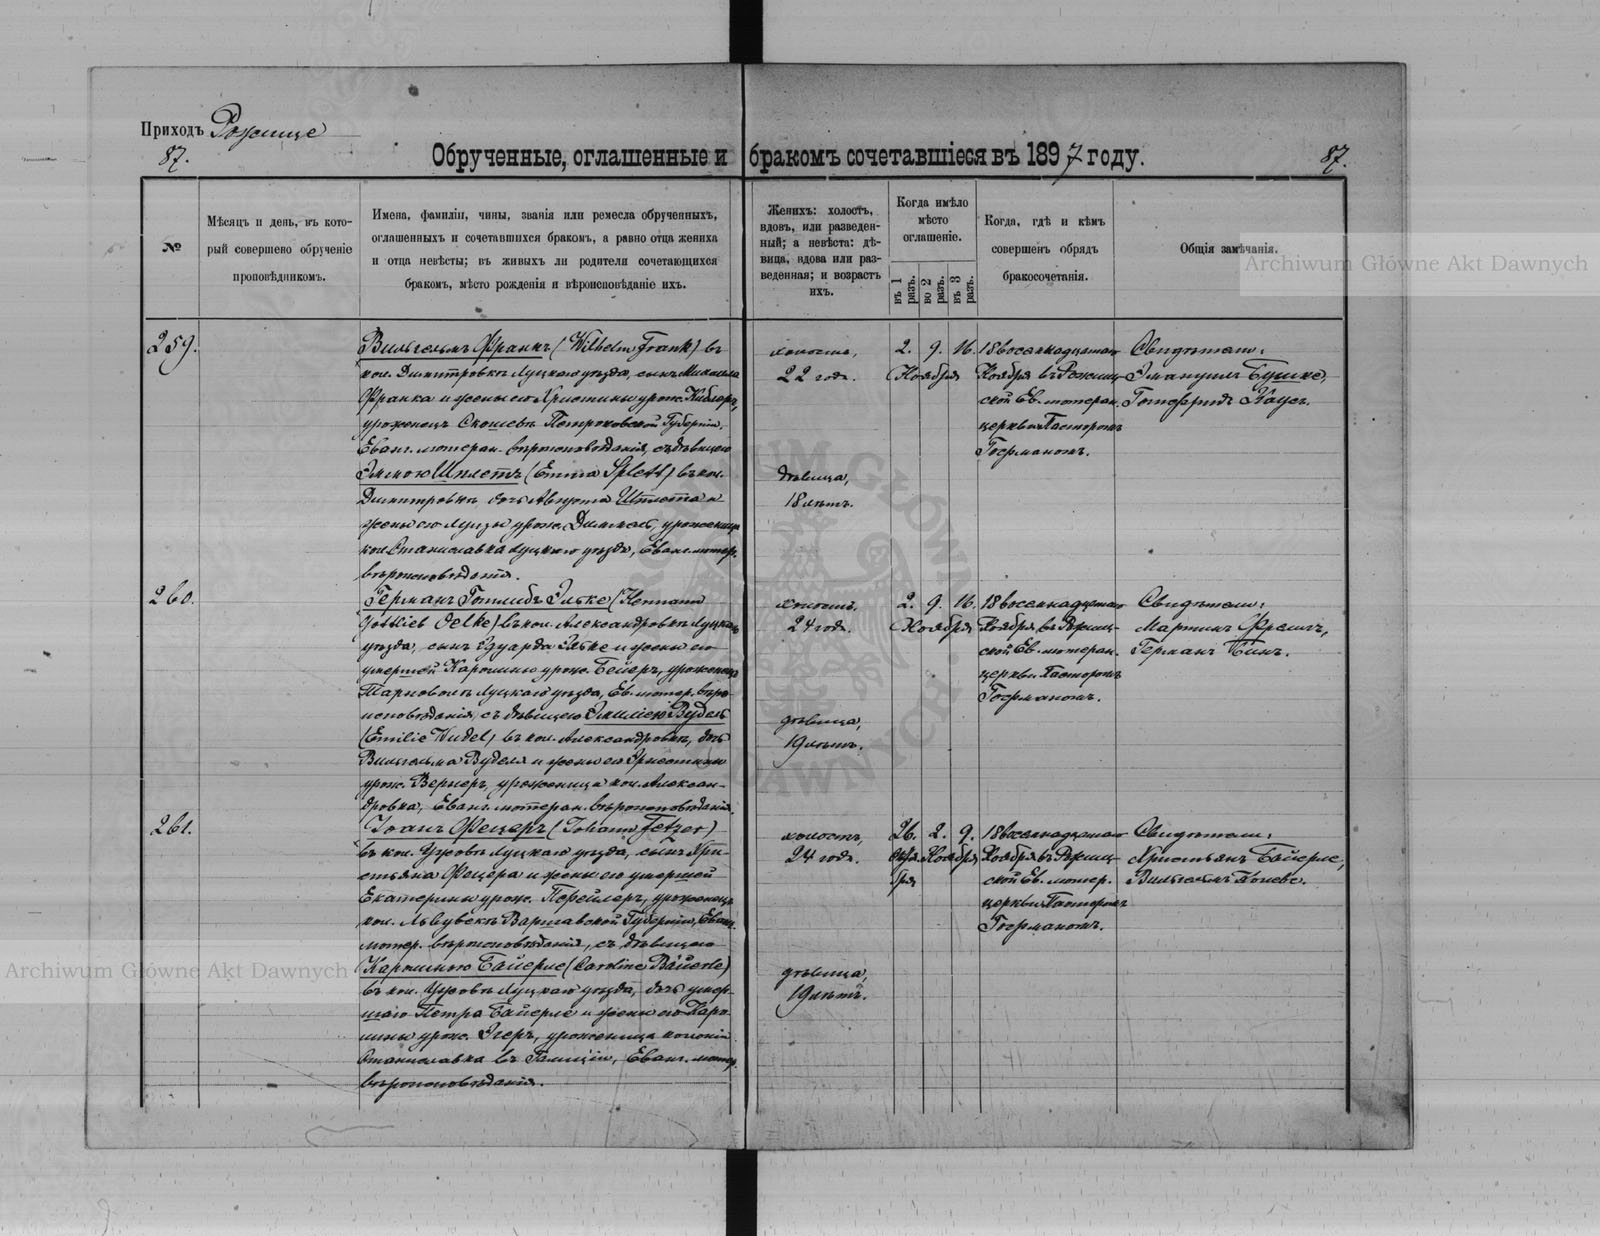 Приходъ Рожище
87.
Обрученные, оглашенные и бракомъ сочетавшіеся въ 1897 году.
87.
№
Мѣсяцъ и день, въ кото-
рый совершено обрученіе
проповѣдникомъ.
Имена, фамиліи, чины, званія или ремесла обрученныхъ,
оглашенныхъ и сочетавшихся бракомъ, а равно отца жениха
и отца невѣсты; въ живыхъ ли родители сочетающихся
бракомъ, мѣсто рожденія и вѣроисповѣданіе ихъ.
Женихъ: холостъ,
вдовъ, или разведен-
ный; а невѣста: дѣ-
вица, вдова или раз-
веденная; и возрастъ
ихъ.
Когда имѣло
мѣсто
оглашеніе.
въ 1 разъ.
во 2 разъ.
въ 3 разъ.
Когда, гдѣ и кѣмъ
совершенъ обрядъ
бракосочетанія.
Общія замѣчанія.
Archiwum Główne Akt Dawnych
259.
Вильгельмъ Франкъ (Wilhelm Frank) въ
кол. Димитровкѣ Луцкаго уѣзда, сынъ Михаила
Франка и жены его Христины урож.
уроженецъ Петроковской Губерніи,
Еванг. лютеран. вѣроисповѣданія, съ дѣвицею
Эммою Шплеттъ (Emma Splett) въ кол.
Димитровкѣ, дочь Августа Шплетта и
жены его Луизы урож. уроженица
кол. Станиславка Луцкаго уѣзда, Еванг. лютер.
вѣроисповѣданія.
холостъ,
22 года.
дѣвица,
18 лѣтъ.
2. 9. 16.
Ноября
18 восемнадцатаго
Ноября въ Рожищ-
ской Ев. лютеран.
церкви Пасторомъ
Госрманомъ.
Свидѣтели:
Эмануилъ Бушке,
Готфридъ
260.
Германъ Готлибъ Эльке (Hermann
Gottlieb Oelke) въ кол. Александровкѣ Луцкаго
уѣзда, сынъ Эдуарда Эльке и жены его
умершей Каролины урож. Бейеръ, уроженецъ
Луцкаго уѣзда, Ев. лютер. вѣро-
исповѣданія, съ дѣвицею Эмиліею Вудель
(Emilie Wudel) въ кол. Александровкѣ, дочь
Вильгельма Вуделя и жены его Христины
урож. Вернеръ, уроженица кол. Алексан-
дровка, Еванг. лютеран. вѣроисповѣданія.
холостъ,
24 года.
дѣвица,
19 лѣтъ.
2. 9. 16.
Ноября
18 восемнадцатаго
Ноября въ Рожищ-
ской Ев. лютеран.
церкви Пасторомъ
Госрманомъ.
Свидѣтели:
Мартинъ
Германъ
261.
Іоганъ Фецеръ (Johann Fetzer)
въ кол. Луцкаго уѣзда, сынъ Хри-
стьяна Фецера и жены его умершей
Екатерины урож. уроженецъ
кол. Варшавской Губерніи, Еванг.
лютер. вѣроисповѣданія, съ дѣвицею
Каролиною Байерле (Caroline Bäuerle)
въ кол. Луцкаго уѣзда, дочь умер-
шаго Петра Байерле и жены его Каро-
лины урож. Эгеръ, уроженица колоніи
Станиславка въ Галиціи, Еванг. лютер.
вѣроисповѣданія.
холостъ,
24 года.
дѣвица,
19 лѣтъ.
26. 2. 9.
Октя- Ноября
бря
18 восемнадцатаго
Ноября въ Рожищ-
ской Ев. лютер.
церкви Пасторомъ
Госрманомъ.
Свидѣтели:
Христьянъ Байерле,
Вильгельмъ
Archiwum Główne Akt Dawnych